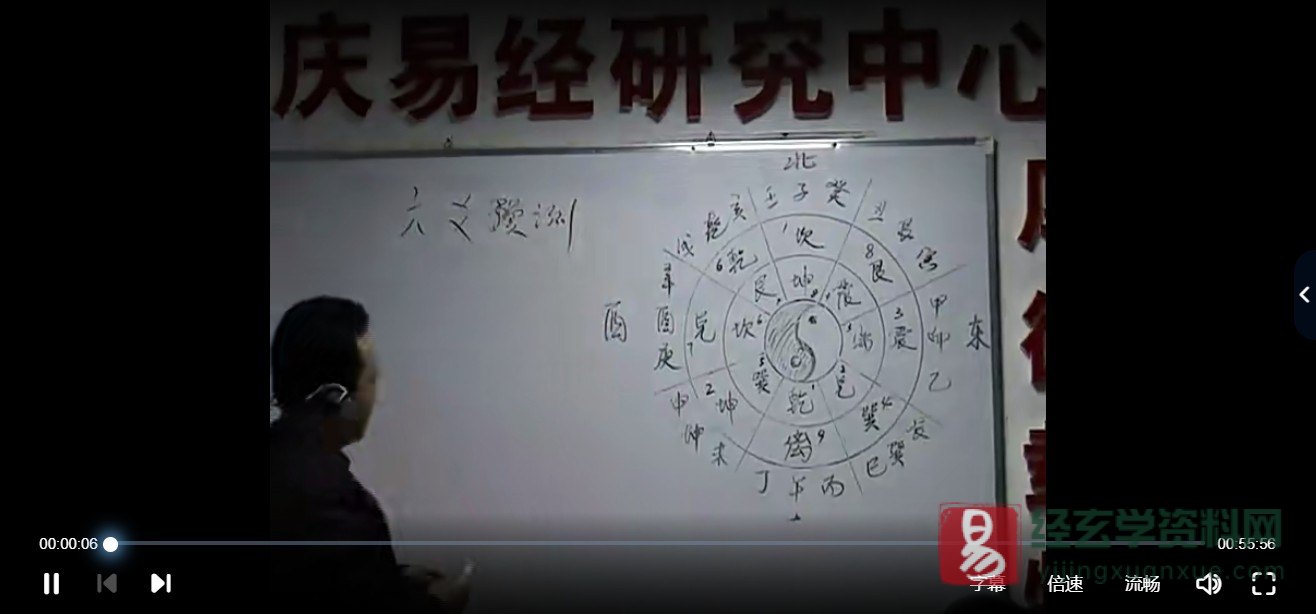 庆易经研究中心
六爻预测
北
壬 子 癸
丑 艮 寅
戌 乾 亥
1 坎
6 乾
8 艮
艮 坤 8
辛
酉 酉
庚
兑 7
坎 6
3 震
甲
卯
乙
东
2 坤
乾 1
兑 2
4
离 9
申 坤 未
巳
丁 午 丙
经玄学资料网
yijingxuanxue.com
易
00:00:06
00:55:56
字幕 倍速 流畅